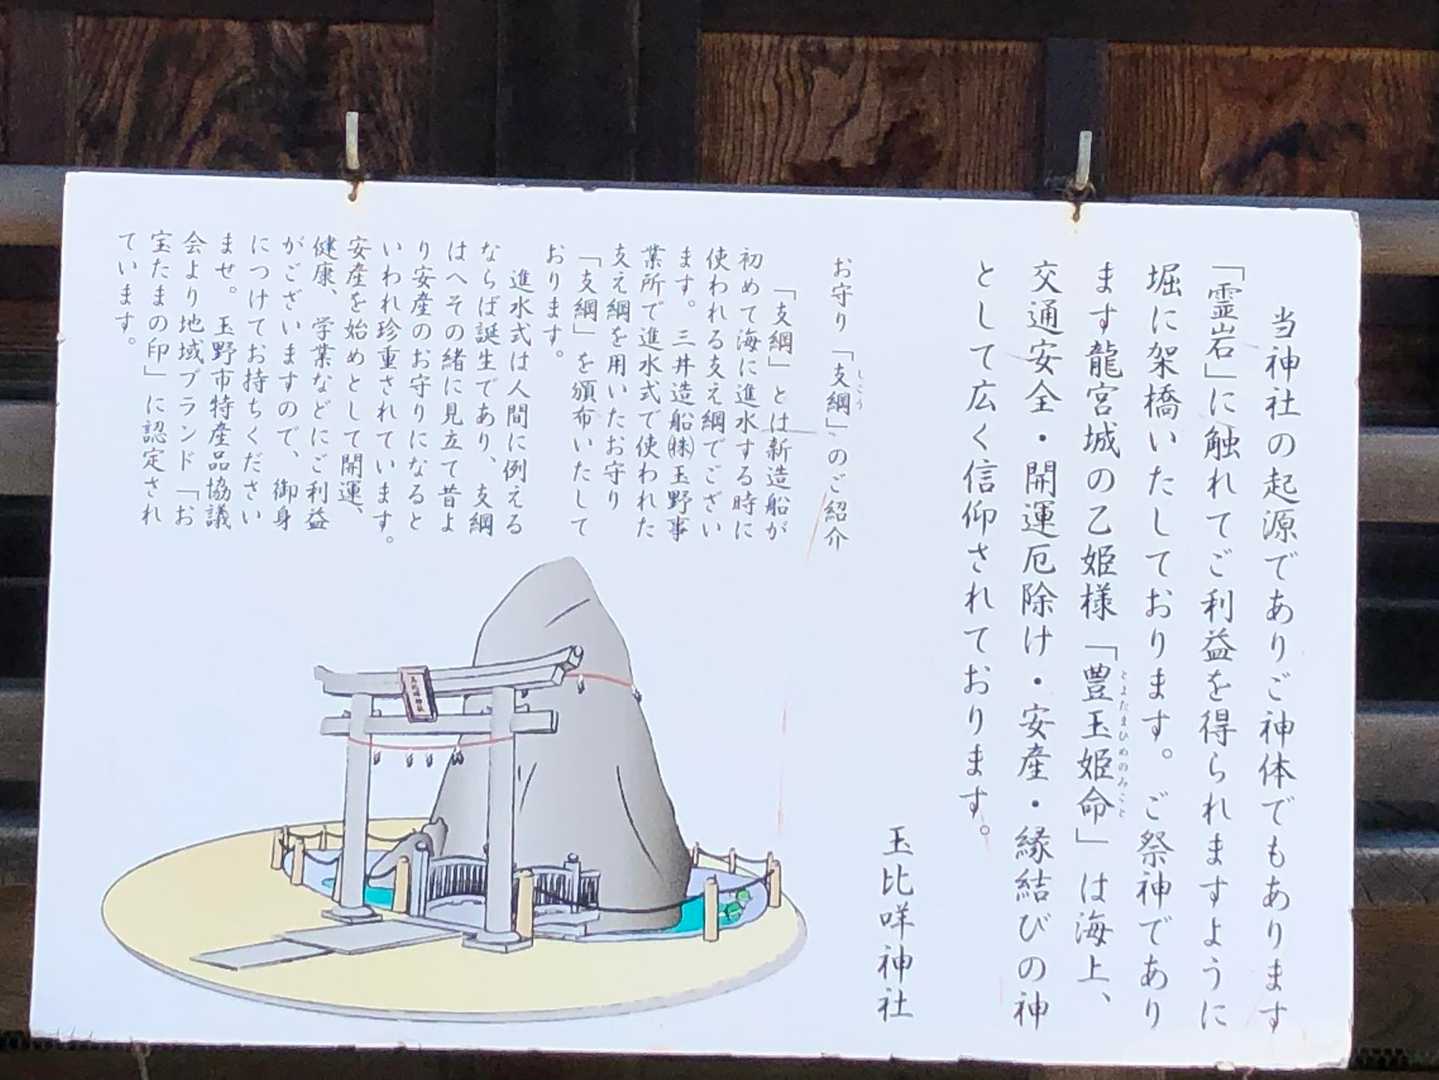 当神社の起源でありご神体でもあります
「霊岩」に触れてご利益を得られますように
堀に架橋いたしております。ご祭神であり
ます龍宮城の乙姫様「豊玉姫命」は海上、
とよたまひめのみこと
交通安全・開運厄除け・安産・縁結びの神
として広く信仰されております。
玉比咩神社
お守り「支綱」のご紹介
しこう
「支綱」とは新造船が
初めて海に進水する時に
使われる支え綱でござい
ます。三井造船㈱玉野事
業所で進水式で使われた
支え綱を用いたお守り
「支綱」を頒布いたして
おります。
進水式は人間に例える
ならば誕生であり、支綱
はへその緒に見立て昔よ
り安産のお守りになると
いわれ珍重されています。
安産を始めとして開運、
健康、学業などにご利益
がございますので、御身
につけてお持ちください
ませ。玉野市特産品協議
会より地域ブランド「お
宝たまの印」に認定され
ています。
玉比咩神社